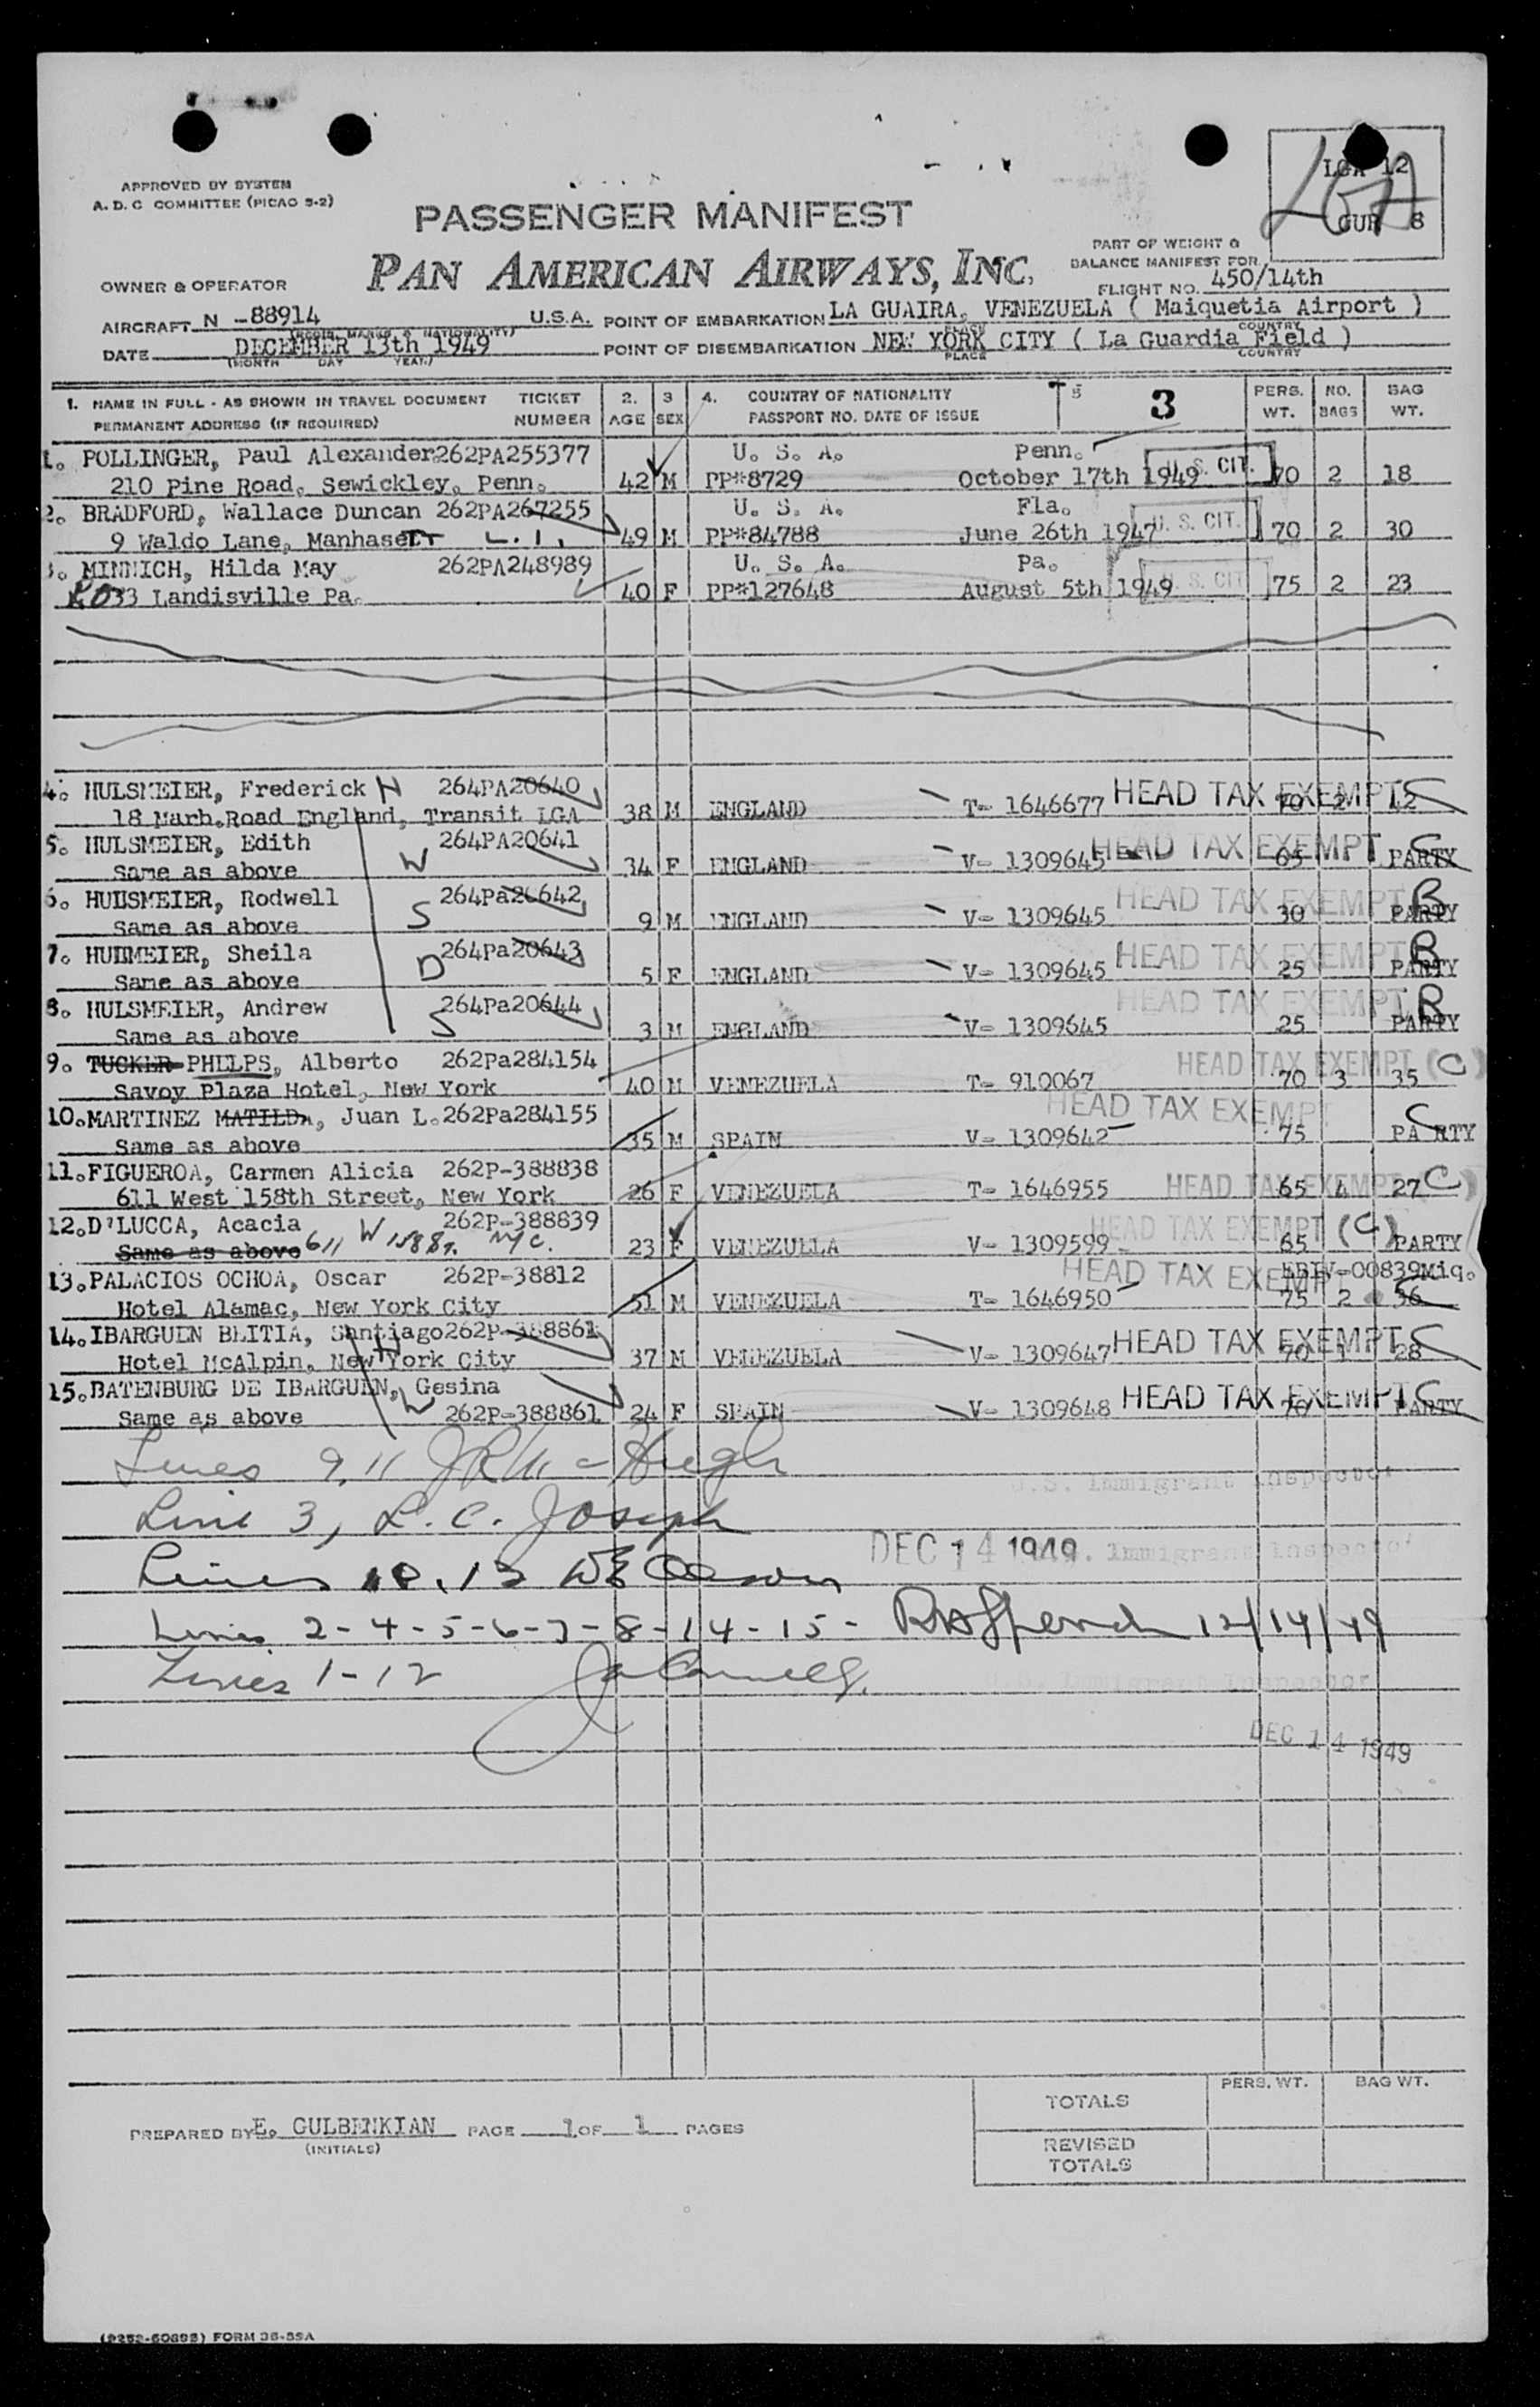 APPROVED BY SYSTEM
A. D. C COMMITTEE (PICAO S-2)
LGA 12
LGA
CUR 8
PASSENGER MANIFEST
PAN AMERICAN AIRWAYS, INC.
PART OF WEIGHT &
BALANCE MANIFEST FOR
FLIGHT NO. 450/14th
OWNER & OPERATOR
AIRCRAFT N -88914 U.S.A. POINT OF EMBARKATION LA GUAIRA, VENEZUELA ( Maiquetia Airport )
(REGIS. MARKS & NATIONALITY) PLACE COUNTRY
DATE DECEMBER 13th 1949 POINT OF DISEMBARKATION NEW YORK CITY ( La Guardia Field )
(MONTH DAY YEAR) PLACE COUNTRY
1. NAME IN FULL - AS SHOWN IN TRAVEL DOCUMENT TICKET 2. 3 4. COUNTRY OF NATIONALITY 5 3 PERS. NO. BAG
PERMANENT ADDRESS (IF REQUIRED) NUMBER AGE SEX PASSPORT NO. DATE OF ISSUE WT. BAGS WT.
1. POLLINGER, Paul Alexander 262PA255377 U. S. A. Penn.
210 Pine Road, Sewickley, Penn. 42 M PP#8729 October 17th 1949 U. S. CIT. 70 2 18
2. BRADFORD, Wallace Duncan 262PA267255 U. S. A. Fla.
9 Waldo Lane, Manhasett L. I. 49 M PP#84788 June 26th 1947 U. S. CIT. 70 2 30
3. MINNICH, Hilda May 262PA248989 U. S. A. Pa.
33 Landisville Pa. 40 F PP#127648 August 5th 1949 U. S. CIT 75 2 23
4. HULSMEIER, Frederick H 264PA20640
18 Marh.Road England, Transit LGA 38 M ENGLAND T- 1646677 HEAD TAX EXEMPT 70 2 42 C
5. HULSMEIER, Edith 264PA20641
Same as above W 34 F ENGLAND V- 1309645 HEAD TAX EXEMPT 65 PARTY C
6. HULSMEIER, Rodwell 264Pa20642
Same as above S 9 M ENGLAND V- 1309645 HEAD TAX EXEMPT 30 PARTY B
7. HULMEIER, Sheila 264Pa20643
Same as above D 5 F ENGLAND V- 1309645 HEAD TAX EXEMPT 25 PARTY B
8. HULSMEIER, Andrew 264Pa20644
Same as above S 3 M ENGLAND V- 1309645 HEAD TAX EXEMPT 25 PARTY B
9. TUCKER PHELPS, Alberto 262Pa284154
Savoy Plaza Hotel, New York 40 M VENEZUELA T- 910067 HEAD TAX EXEMPT 70 3 35 (C)
10.MARTINEZ MATILDA, Juan L. 262Pa284155
Same as above 35 M SPAIN V- 1309642 HEAD TAX EXEMPT 75 PARTY C
11.FIGUEROA, Carmen Alicia 262P-388838
611 West 158th Street, New York 26 F VENEZUELA T- 1646955 HEAD TAX EXEMPT 65 4 27 C
12.D'LUCCA, Acacia 262P-388839
Same as above 611 W 158 St. NYC. 23 F VENEZUELA V- 1309599 HEAD TAX EXEMPT 65 (C) PARTY
13.PALACIOS OCHOA, Oscar 262P-38812 EBIV-00839Miq.
Hotel Alamac, New York City 51 M VENEZUELA T- 1646950 HEAD TAX EXEMPT 75 2 56 C
14.IBARGUEN BEITIA, Santiago 262P-388861
Hotel McAlpin, New York City H 37 M VENEZUELA V- 1309647 HEAD TAX EXEMPT 70 1 28 C
15.BATENBURG DE IBARGUEN, Gesina
Same as above W 262P-388861 24 F SPAIN V- 1309648 HEAD TAX EXEMPT 70 PARTY C
Lines 9, 11
U.S. Immigrant Inspector
Line 3, L. C. Joseph
DEC 14 1949. Immigrant Inspector
Lines 10, 13
Lines 2-4-5-6-7-8-14-15- 12/14/49
Lines 1-12
U.S. Immigrant Inspector
DEC 14 1949
PERS. WT. BAG WT.
TOTALS
PREPARED BY E. GULBENKIAN PAGE 1 OF 1 PAGES
(INITIALS)
REVISED
TOTALS
(9252-60898) FORM 36-55A